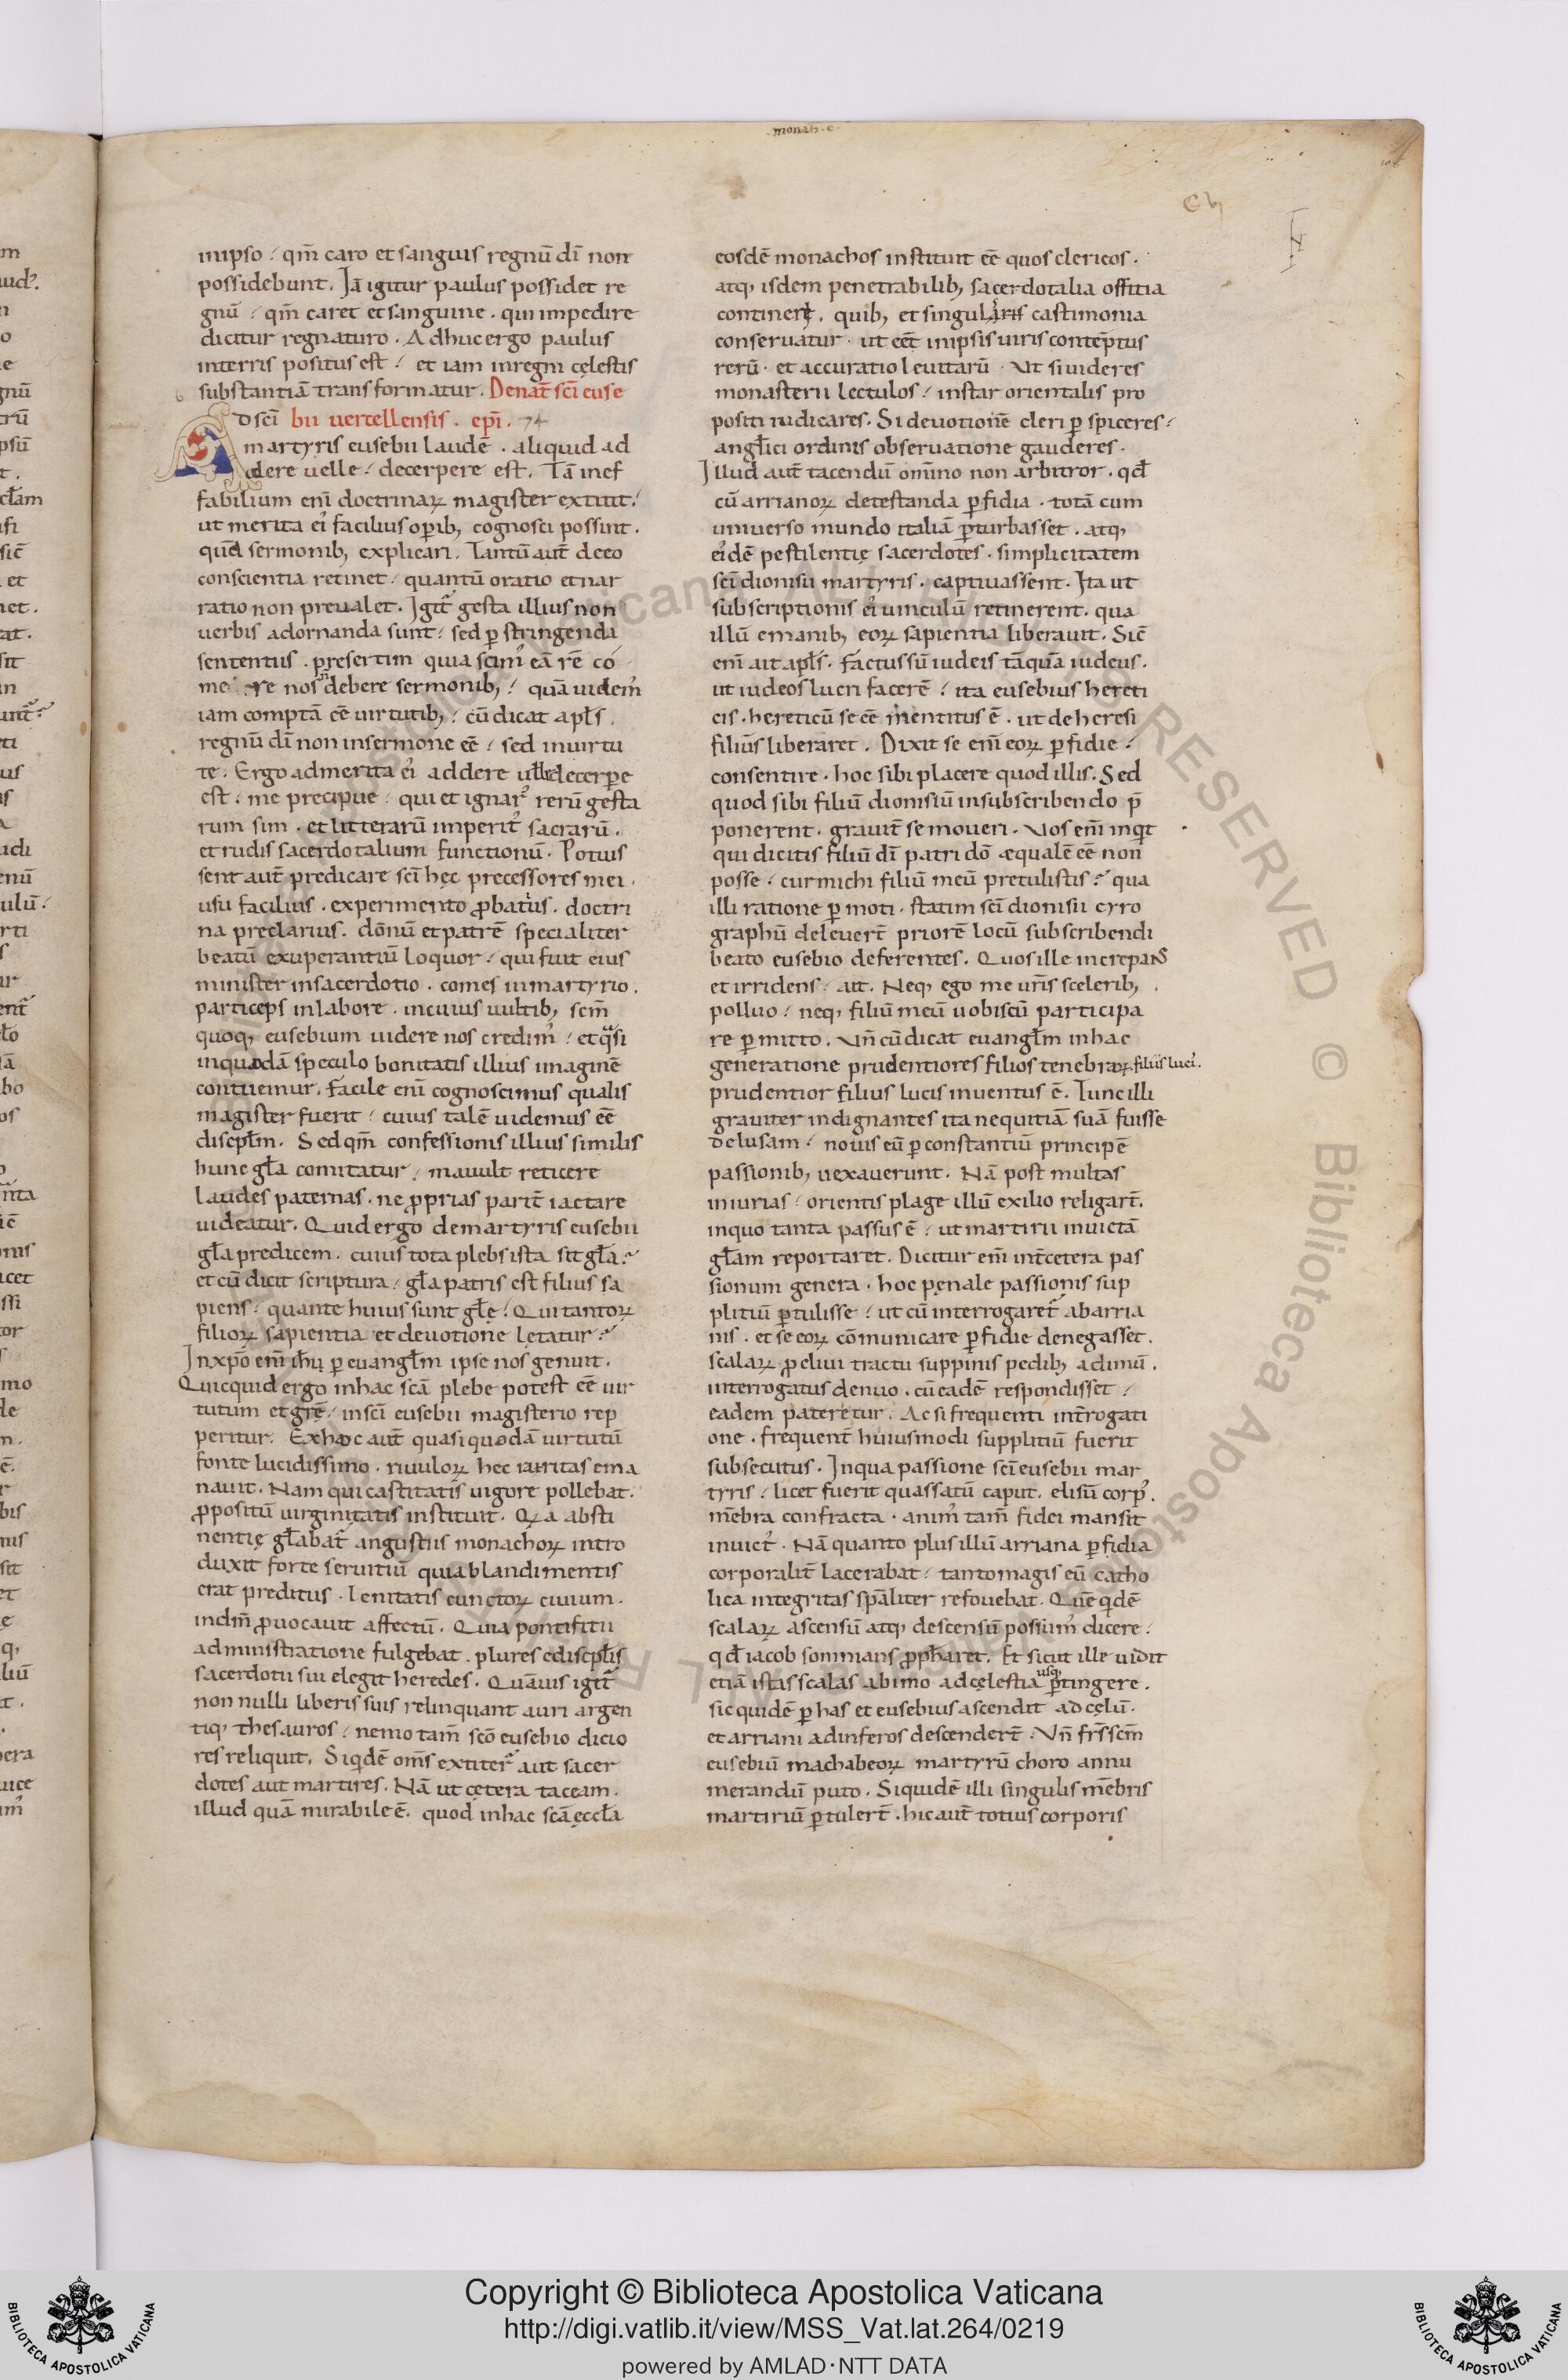 monach. e
C vi
inipso / qm̄ caro et sanguis regnū dī non
possidebunt. Jā igitur paulus possidet re
gnū / qm̄ caret et sanguine . qui impedire
dicitur regnaturo . Adhuc ergo paulus
interris positus est / et iam inregni cęlestis
substantiā transformatur . De nat̄ sc̄i euse
bii uercellensis . ep̄i . 74
D sc̄i
martyris eusebii laudē . aliquid ad
dere uelle / decerpere est . Tā inef
fabilium eni doctrinaꝝ magister extitit /
ut merita ei᾽ facilius oꝑib; cognosci possint .
quā sermonib; explicari . Tantū aut̄ de eo
conscientia retinet / quantū oratio et nar
ratio non preualet . Igit᷑ gesta illius non
uerbis adornanda sunt / sed ꝑstringenda
sententiis . presertim quia scim᾽ eā rē
nos debere sermonib; / quā uidem᾽
iam comptā eē uirtutib; / cū dicat apl̄s .
regnū dī non insermone eē / sed inuirtu
te . Ergo admerita ei᾽ addere decerꝑe
est . me precipue / qui et ignar᾽ rerū gesta
rum sim . et litterarū imperit᾽ sacrarū .
et rudis sacerdotalium functionū . Potuis
sent aut̄ predicare sc̄i hęc precessores mei .
usu facilius . experimento ꝓbatius . doctri
na preclarius . domnū et patrē specialiter
beatū exuperantiū loquor / qui fuit eius
minister insacerdotio . comes inmartyrio .
particeps inlabore . incuius uultib; scm̄
quoq; eusebium uidere nos credim᾽ / et qͣsi
inquodā speculo bonitatis illius imaginē
contuemur . facile eni cognoscimus qualis
magister fuerit / cuius talē uidemus eē
discipl̄m . Sed qm̄ confessionis illius similis
hunc gl̄a comitatur / mauult reticere
laudes paternas . ne ꝓprias parit̄ iactare
uideatur . Quid ergo demartyris eusebii
gl̄a predicem . cuius tota plebs ista sit gl̄a ?
et cū dicit scriptura / gl̄a patris est filius sa
piens / quante huius sunt gl̄ę / Qui tantoꝝ
filioꝝ sapientia et deuotione lętatur ?
Inxp̄o eni ih̄u ꝑ euangl̄m ipse nos genuit .
Quicquid ergo inhac scā plebe potest eē uir
tutum et grē / insc̄i eusebii magisterio rep
peritur . Exhoc aut̄ quasi quodā uirtutū
fonte lucidissimo . riuuloꝝ hec ema
nauit . Nam qui castitatis uigore pollebat .
ꝓpositū uirginitatis instituit . Qia absti
nentię gl̄abat᷑ angustiis monachoꝝ intro
duxit forte seruitiū quia blandimentis
erat preditus . lenitatis cunctoꝝ ciuium .
indm̄ ꝓuocauit affectū . Quia pontifitii
administratione fulgebat . plures ediscipl̄is
sacerdotii sui elegit heredes . Quāuis igit᷑
non nulli liberis suis relinquant auri argen
tiq; thesauros / nemo tam̄ scō eusebio dicio
res reliquit . Siqdē om̄s extiter᷑ aut sacer
dotes aut martires . Nā ut cętera taceam .
illud quā mirabile ē . quod inhac scā ęccl̄a
eosdē monachos instituit eē quos clericos .
atq; isdem penetrabilib; sacerdotalia offitia
contineri . quib; et singularis castimonia
conseruatur . ut eēt inipsis uiris contēptus
rerū . et accuratio leuitarū . Ut si uideres
monasterii lectulos / instar orientalis pro
positi iudicares . Si deuotionē cleri ꝑspiceres /
angl̄ici ordinis obseruatione gauderes .
Illud aut̄ tacendū omīno non arbitror . qd̄
cū arrianoꝝ detestanda ꝑfidia . totā cum
uniuerso mundo italiā ꝑturbasset . atq;
ei᾽dē pestilentię sacerdotes . simplicitatem
sc̄i dionisii martyris . captiuassent . Ita ut
subscriptionis ei᾽ uinculū retinerent . qua
illū emanib; eoꝝ sapientia liberauit . Sic̄
eni ait apl̄s . factus sū iudeis tāquā iudeus .
ut iudeos lucri facerē / ita eusebius hereti
cis . hereticū se eē mentitus ē . ut deheresi
filiū liberaret . Dixit se eni eoꝝ ꝑfidie /
consentire . hoc sibi placere quod illis . Sed
quod sibi filiū dionisiū insubscribendo p̄
ponerent . grauit̄ se moueri . Vos eni inqͥt
qui dicitis filiū dī patri dō æqualē eē non
posse / cur michi filiū meū pretulistis ? qua
illi ratione ꝑmoti . statim sc̄i dionisii cyro
graphū deleuert̄ priorē locū subscribendi
beato eusebio deferentes . Quos ille increpans
et irridens / ait . Neq; ego me ur̄is scelerib; .
polluo / neq; filiū meū uobiscū participa
re ꝑmitto . Vn̄ cū dicat euangl̄m inhac
generatione prudentiores filios tenebraꝝ . filiis luci᾽.
prudentior filius lucis inuentus ē . Tunc illi
grauiter indignantes ita nequitiā suā fuisse
delusam / nouis eū ꝑ constantiū principē
passionib; uexauerunt . Nā post multas
iniurias / orientis plage illū exilio religart̄ .
inquo tanta passus ē / ut martirii inuictā
gl̄am reportaret . Dicitur eni int̄ cetera pas
sionum genera . hoc pęnale passionis sup
plitiū ꝑtulisse / ut cū interrogaret᷑ abarria
nis . et se eoꝝ cōmunicare ꝑfidie denegasset .
scalaꝝ ꝓcliui tractu suppinis pedib; adimū .
interrogatus denuo . cū eadē respondisset /
eadem pateretur . Ac si frequenti int̄rogati
one . frequent̄ huiusmodi supplitiū fuerit
subsecutus . Inqua passione sc̄i eusebii mar
tyris / licet fuerit quassatū caput . elisū corp᾽.
mēbra confracta . anim᾽ tam̄ fidei mansit
inuict᾽ . Nā quanto plus illū arriana ꝑfidia
corporalit̄ lacerabat / tantomagis eū catho
lica integritas spāliter refouebat . Quē qͥdē
scalaꝝ ascensū atq; descensū possum᾽ dicere /
qd̄ iacob somnians ꝓpharet . Et sicut ille uidit
etiā istas scalas abimo adcęlestia usq; ꝑtingere .
sic quidē ꝑ has et eusebius ascendit adcęlū .
et arriani adinferos descendert̄ . Vn̄ fr̄s scm̄
eusebiū machabeoꝝ martyrū choro annu
merandū puto . Siquidē illi singulis mēbris
martiriū ꝑtulert̄ . hic aut̄ totius corporis
Copyright © Biblioteca Apostolica Vaticana
http://digi.vatlib.it/view/MSS_Vat.lat.264/0219
powered by AMLAD·NTT DATA